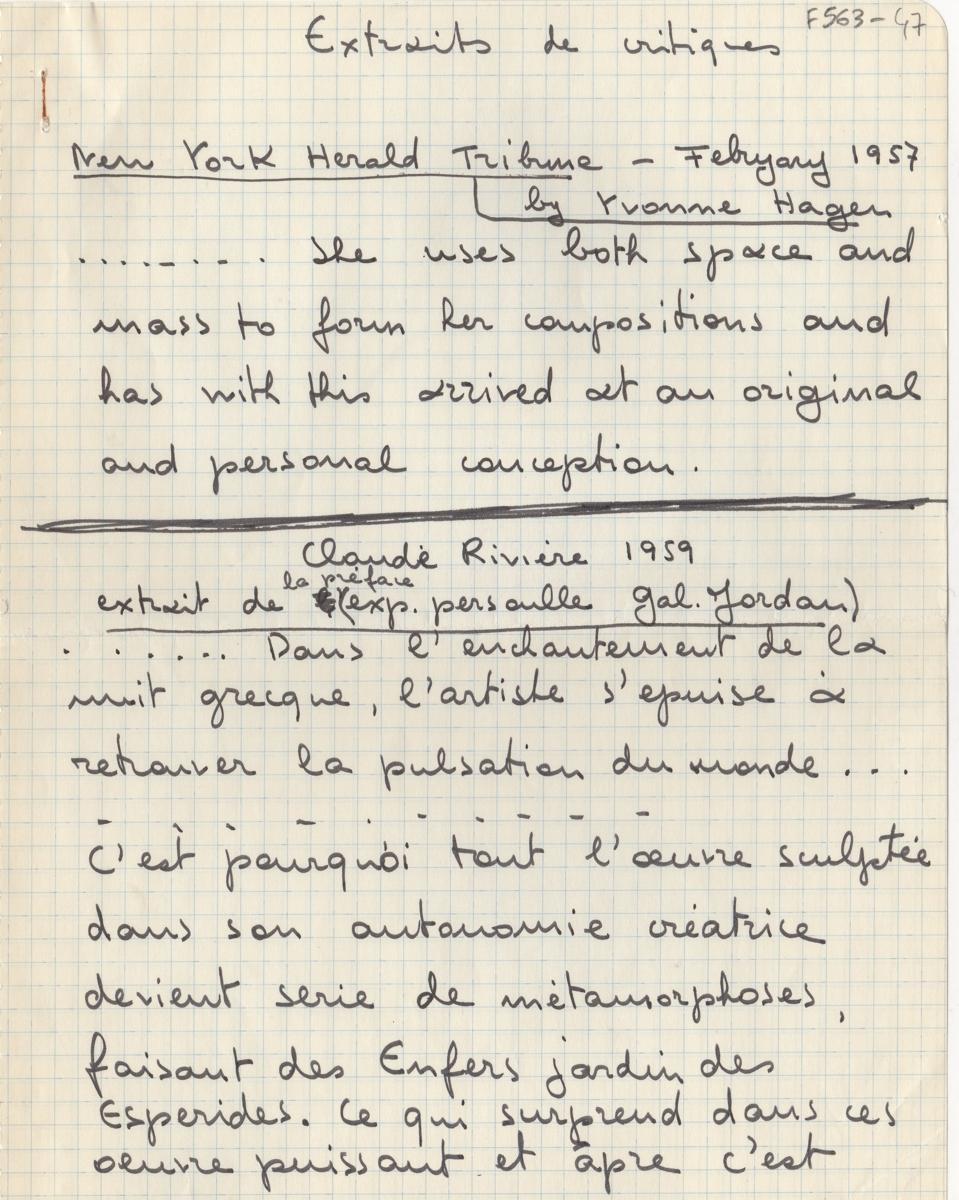 F563-47
Extraits de critiques
New York Herald Tribune - February 1957
by Yvonne Hagen
........ She uses both space and
mass to form her compositions and
has with this arrived at an original
and personal conception.
Claude Rivière 1959
la préface
extrait de (exp. persoulle Gal. Jordan)
. ..... Dans l'enchantement de la
nuit grecque, l'artiste s'epuise à
retrouver la pulsation du monde...
- - - - . - - - - -
C'est pourquoi tout l'œuvre sculptée
dans son autonomie créatrice
devient serie de métamorphoses,
faisant des Enfers jardin des
Esperides. Ce qui surprend dans ces
oeuvre puissant et âpre c'est